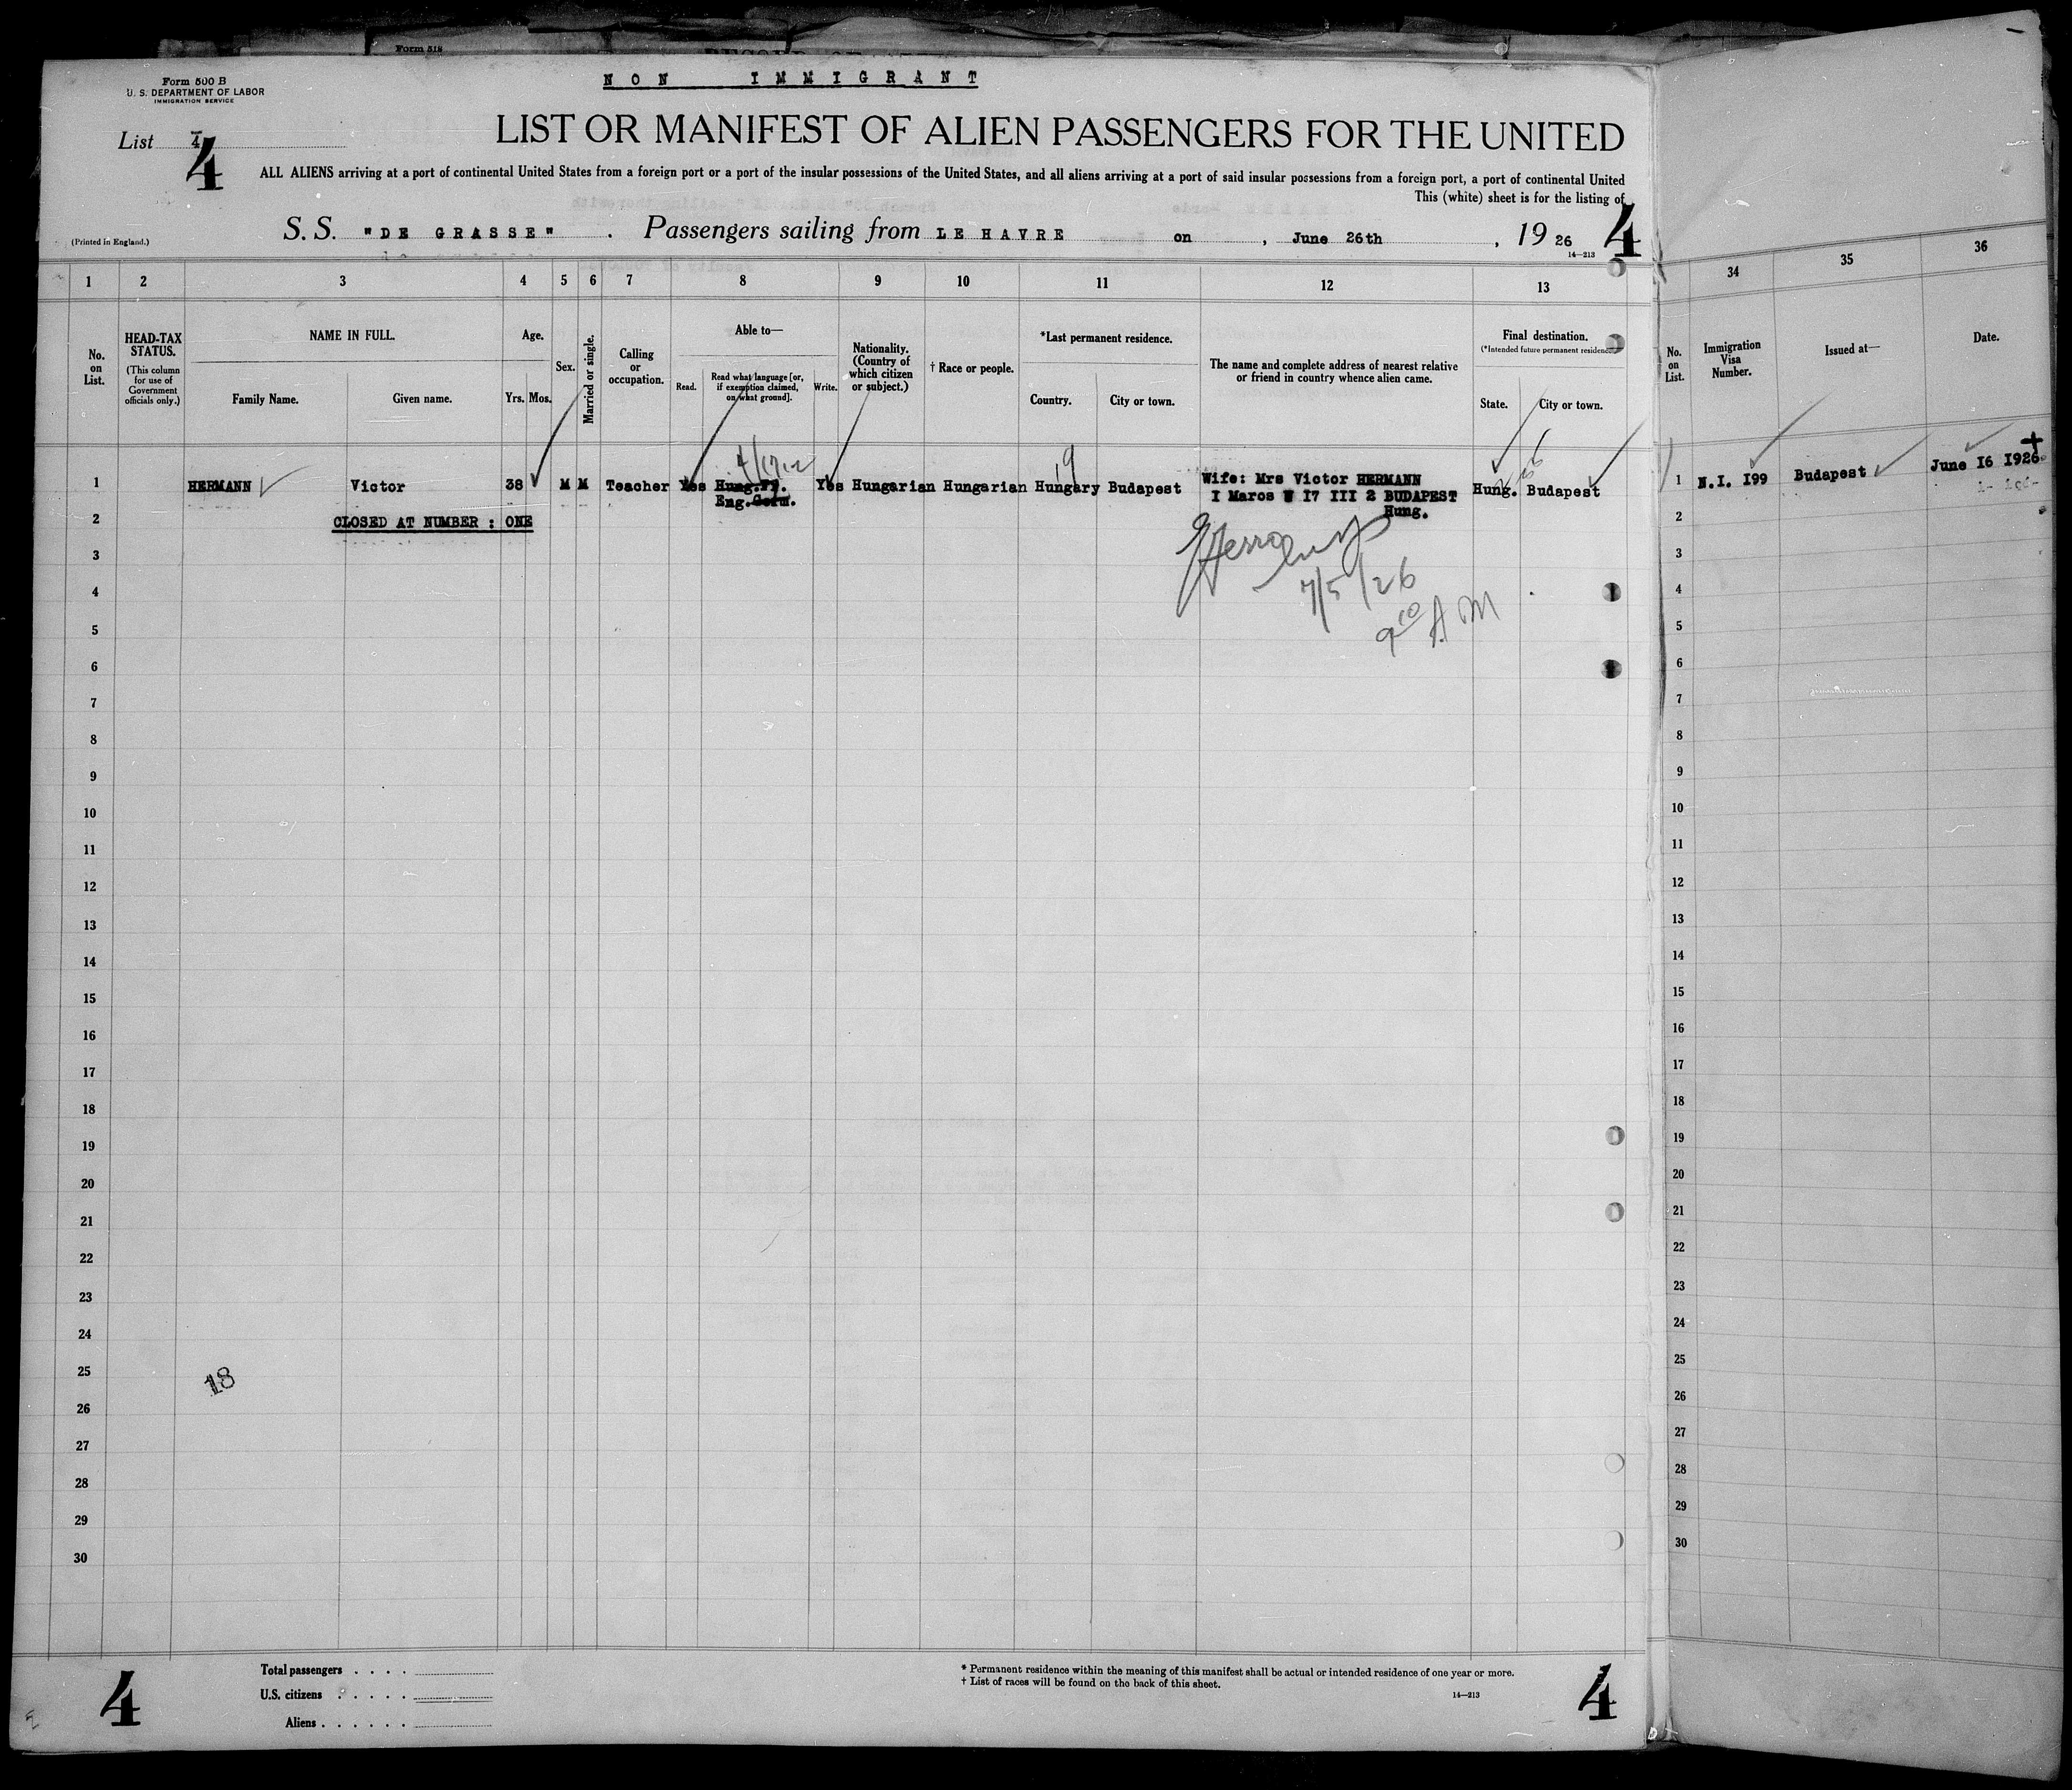 Form 518
Form 500 B
U. S. DEPARTMENT OF LABOR
IMMIGRATION SERVICE
NON IMMIGRANT
List 4
4
LIST OR MANIFEST OF ALIEN PASSENGERS FOR THE UNITED
ALL ALIENS arriving at a port of continental United States from a foreign port or a port of the insular possessions of the United States, and all aliens arriving at a port of said insular possessions from a foreign port, a port of continental United
This (white) sheet is for the listing of
(Printed in England.)
S. S. "DE GRASSE" . Passengers sailing from LE HAVRE on , June 26th , 19 26
4
14—213
1 2 3 4 5 6 7 8 9 10 11 12 13
34 35 36
No. on List.
HEAD-TAX STATUS.
(This column for use of Government officials only.)
NAME IN FULL.
Family Name. Given name.
Age.
Yrs. Mos.
Sex.
Married or single.
Calling or occupation.
Able to—
Read. Read what language [or, if exemption claimed, on what ground]. Write.
Nationality. (Country of which citizen or subject.)
† Race or people.
*Last permanent residence.
Country. City or town.
The name and complete address of nearest relative or friend in country whence alien came.
Final destination.
(*Intended future permanent residence.)
State. City or town.
No. on List.
Immigration Visa Number.
Issued at—
Date.
1 HERMANN Victor 38 M M Teacher Yes Hung.Fr. Yes Hungarian Hungarian Hungary Budapest Wife: Mrs Victor HERMANN Hung. Budapest
Eng.Germ. I Maros I7 III 2 BUDAPEST
Hung.
1 N.I. I99 Budapest June I6 I926
2 CLOSED AT NUMBER : ONE
7/5/26
9 10 A M
2
3
4
5
6
7
8
9
10
11
12
13
14
15
16
17
18
19
20
21
22
23
24
25
26
27
28
29
30
18
2
3
4
5
6
7
8
9
10
11
12
13
14
15
16
17
18
19
20
21
22
23
24
25
26
27
28
29
30
4
Total passengers . . . .
U.S. citizens . . . . .
Aliens . . . . . .
* Permanent residence within the meaning of this manifest shall be actual or intended residence of one year or more.
† List of races will be found on the back of this sheet.
14—213
4